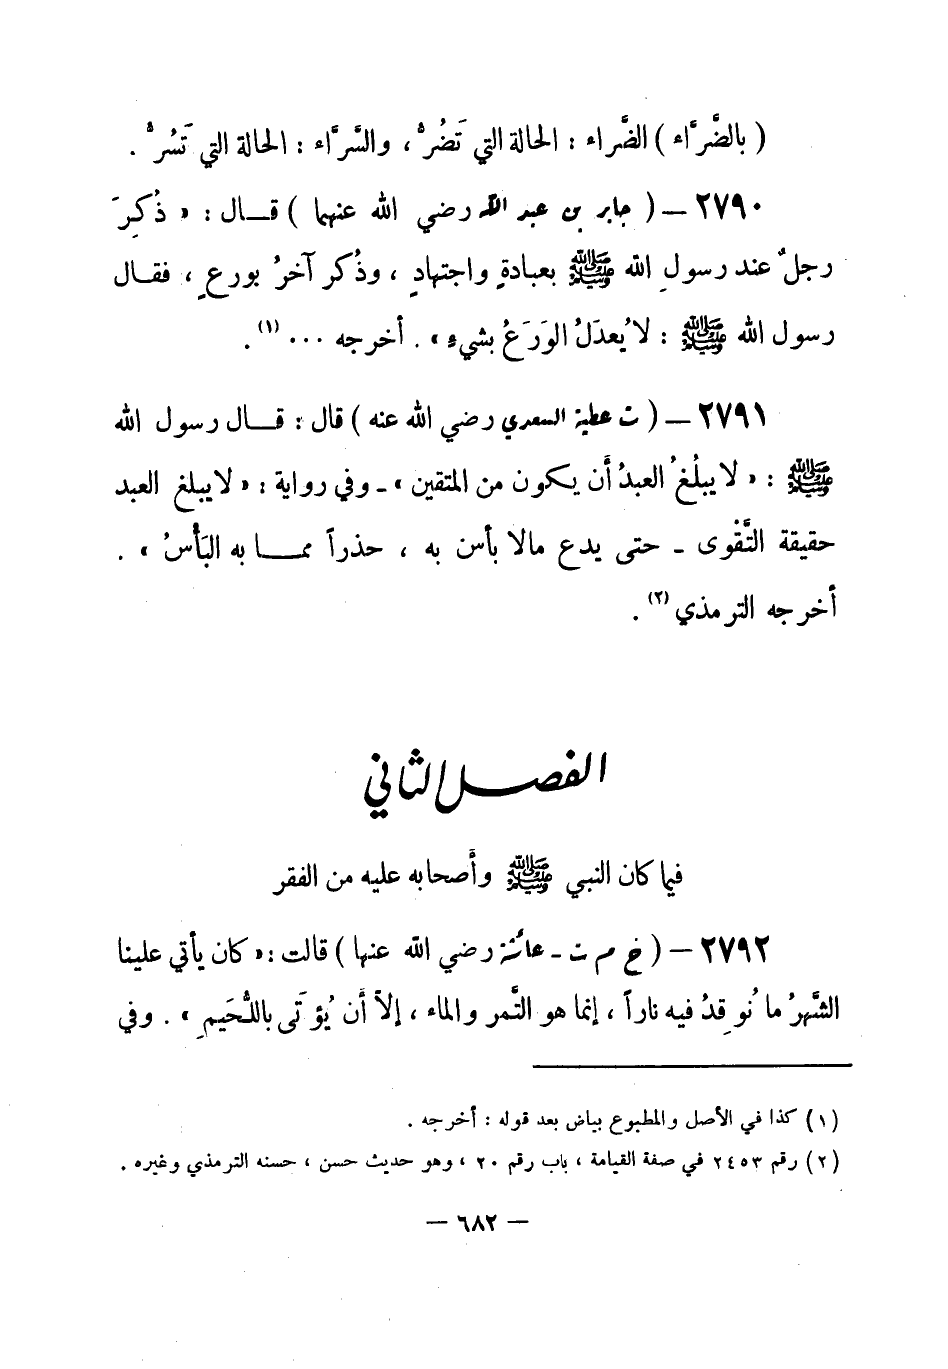 ( بالضَّرَّاء ) الضَّراء : الحالة التي تَضُرُّ ، والسَّرَّاء : الحالة التي تَسُرُّ .
٢٧٩٠ – ( جابر بن عبد الله رضي الله عنهما ) قـــال : « ذُكِرَ
رجلٌ عند رسولِ الله ﷺ بعبادةٍ واجتهادٍ ، وذُكر آخرُ بورعٍ ، فقـال
رسول الله ﷺ : لا يُعدَلُ الوَرَعُ بشيءٍ » . أخرجه ... (١) .
٢٧٩١ – ( ت عطية السعدي رضي الله عنه ) قال : قـــال رسول الله
ﷺ : « لا يبلُغُ العبدُ أن يكون من المتقين » ـ وفي رواية : « لا يبلغ العبد
حقيقة التَّقْوى ـ حتى يدع مالا بأس به ، حذراً ممـــا به البَأْسُ » .
أخرجه الترمذي (٢) .
الفصل الثاني
فيما كان النبي ﷺ وأصحابه عليه من الفقر
٢٧٩٢ – ( خ م ت ـ عائشة رضي الله عنها ) قالت : « كان يأتي علينا
الشَّهرُ ما نُوقِدُ فيه ناراً ، إنما هو التَّمر والماء ، إلاَّ أن يُؤتَى باللُّحَيمِ » . وفي
(١) كذا في الأصل والمطبوع بياض بعد قوله : أخرجه .
(٢) رقم ٢٤٥٣ في صفة القيامة ، باب رقم ٢٠ ، وهو حديث حسن ، حسنه الترمذي وغيره .
– ٦٨٢ –